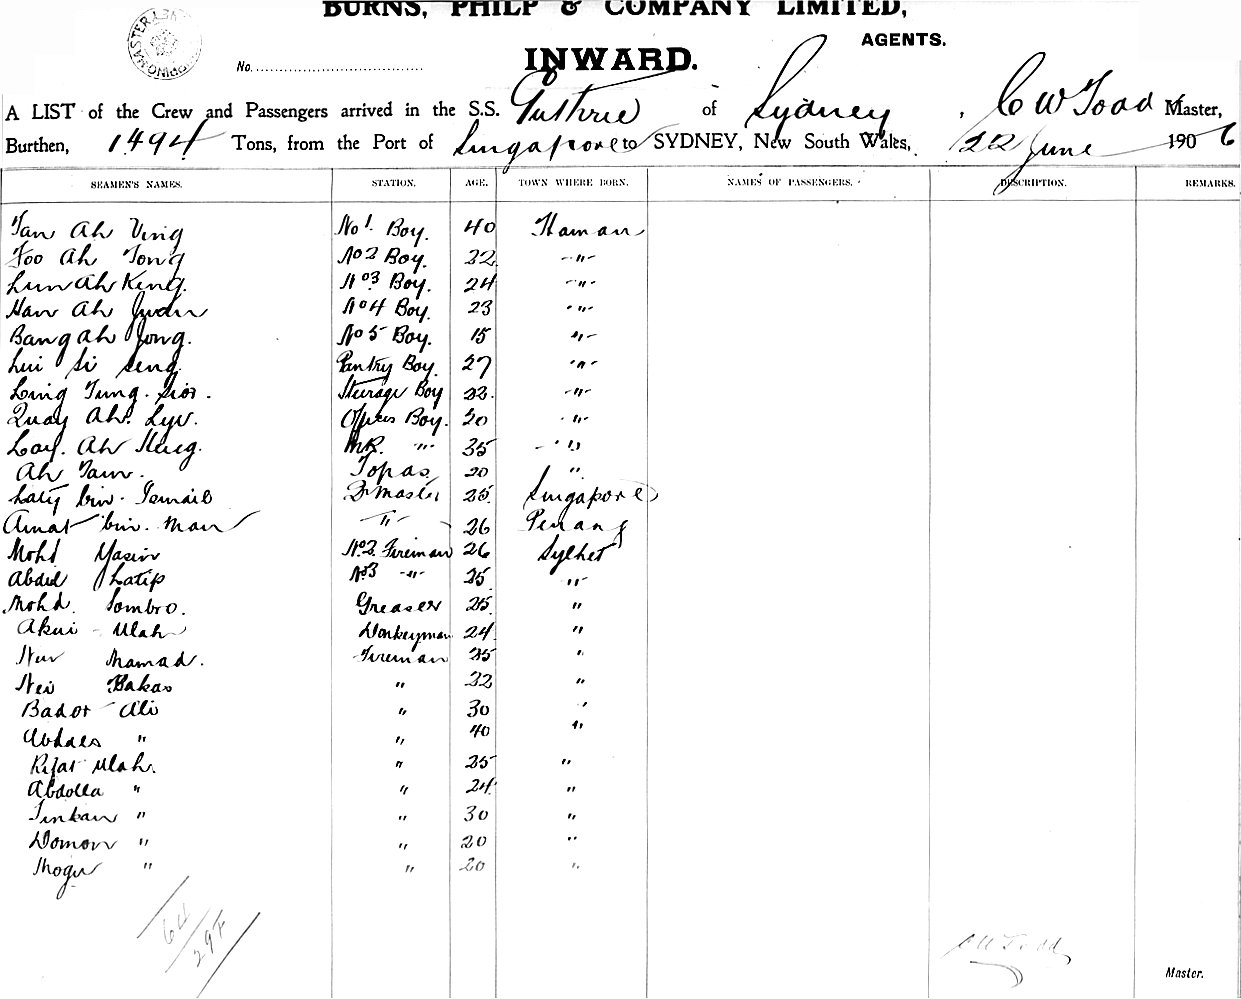 BURNS, PHILP & COMPANY LIMITED,
AGENTS.
INWARD.
No.
A LIST of the Crew and Passengers arrived in the S.S. Guthrie of Sydney, C W Todd Master,
Burthen, 1494 Tons, from the Port of Singapore to SYDNEY, New South Wales, 22 June 1906
SEAMEN'S NAMES. STATION. AGE. TOWN WHERE BORN. NAMES OF PASSENGERS. DESCRIPTION. REMARKS.
Tan Ah Ving No 1. Boy. 40 Hainan
Foo Ah Tong No 2 Boy. 22 -"-
Lum Ah King. No 3 Boy. 24 -"-
Han Ah Juan No 4 Boy. 23 "
Bang Ah Jong. No 5 Boy. 15 "-
Lui Si Seng Pantry Boy. 27 "
Ling Tung. Boy -"-
Quay Ah. Boy. 20 -"-
Ah 35 "
Ah Tam. Topas 20 "
bin. Ismail 25 Singapore
Amat bin. Man " 26 Penang
Mohd Yasin No 2. Fireman 26 Sylhet
Abdul Latip No 3 -"- 25 "
Mohd. Sombro. Greaser 25 "
Ulah Donkeyman 24 "
Mamad. Fireman 25 "
Bakas " 32 "
Badot Ali " 30 "
" " 40 "
Rifat Ulah. " 25 "
Abdolla " " 24 "
" " 30 "
Domon " " 20 "
Moger " " 20 "
64
297
C W Todd
Master.